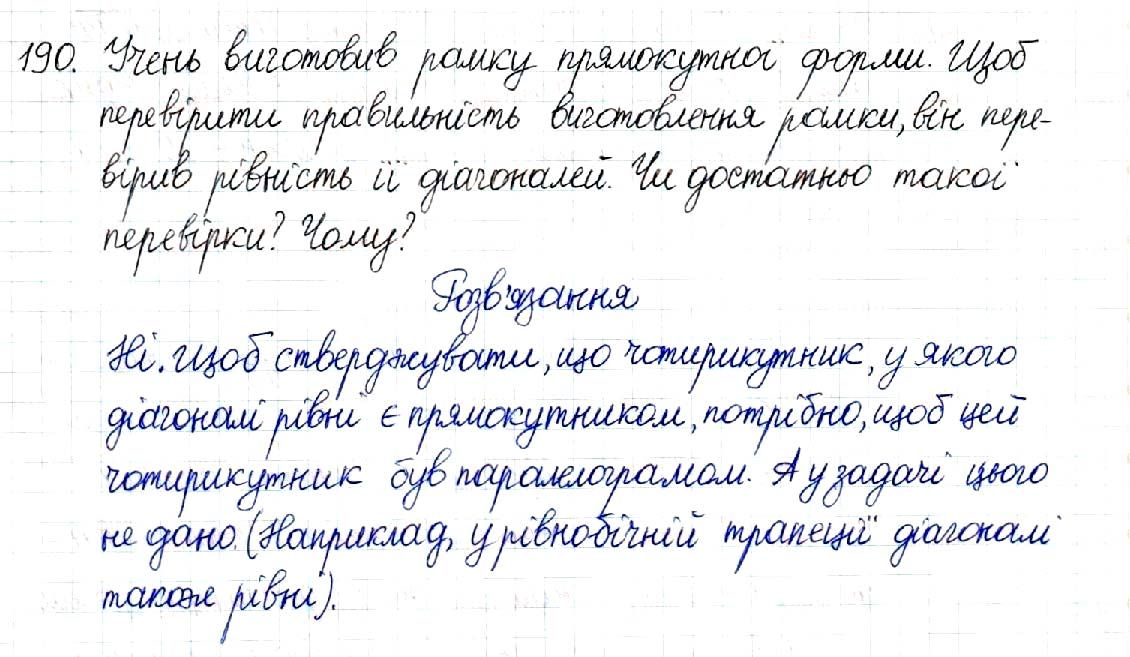 190. Учень виготовив рамку прямокутної форми. Щоб
перевірити правильність виготовлення рамки, він пере-
вірив рівність її діагоналей. Чи достатньо такої
перевірки? Чому?
Розв'язання
Ні. Щоб стверджувати, що чотирикутник, у якого
діагоналі рівні є прямокутником, потрібно, щоб цей
чотирикутник був паралелограмом. А у задачі цього
не дано. (Наприклад, у рівнобічній трапеції діагоналі
також рівні).